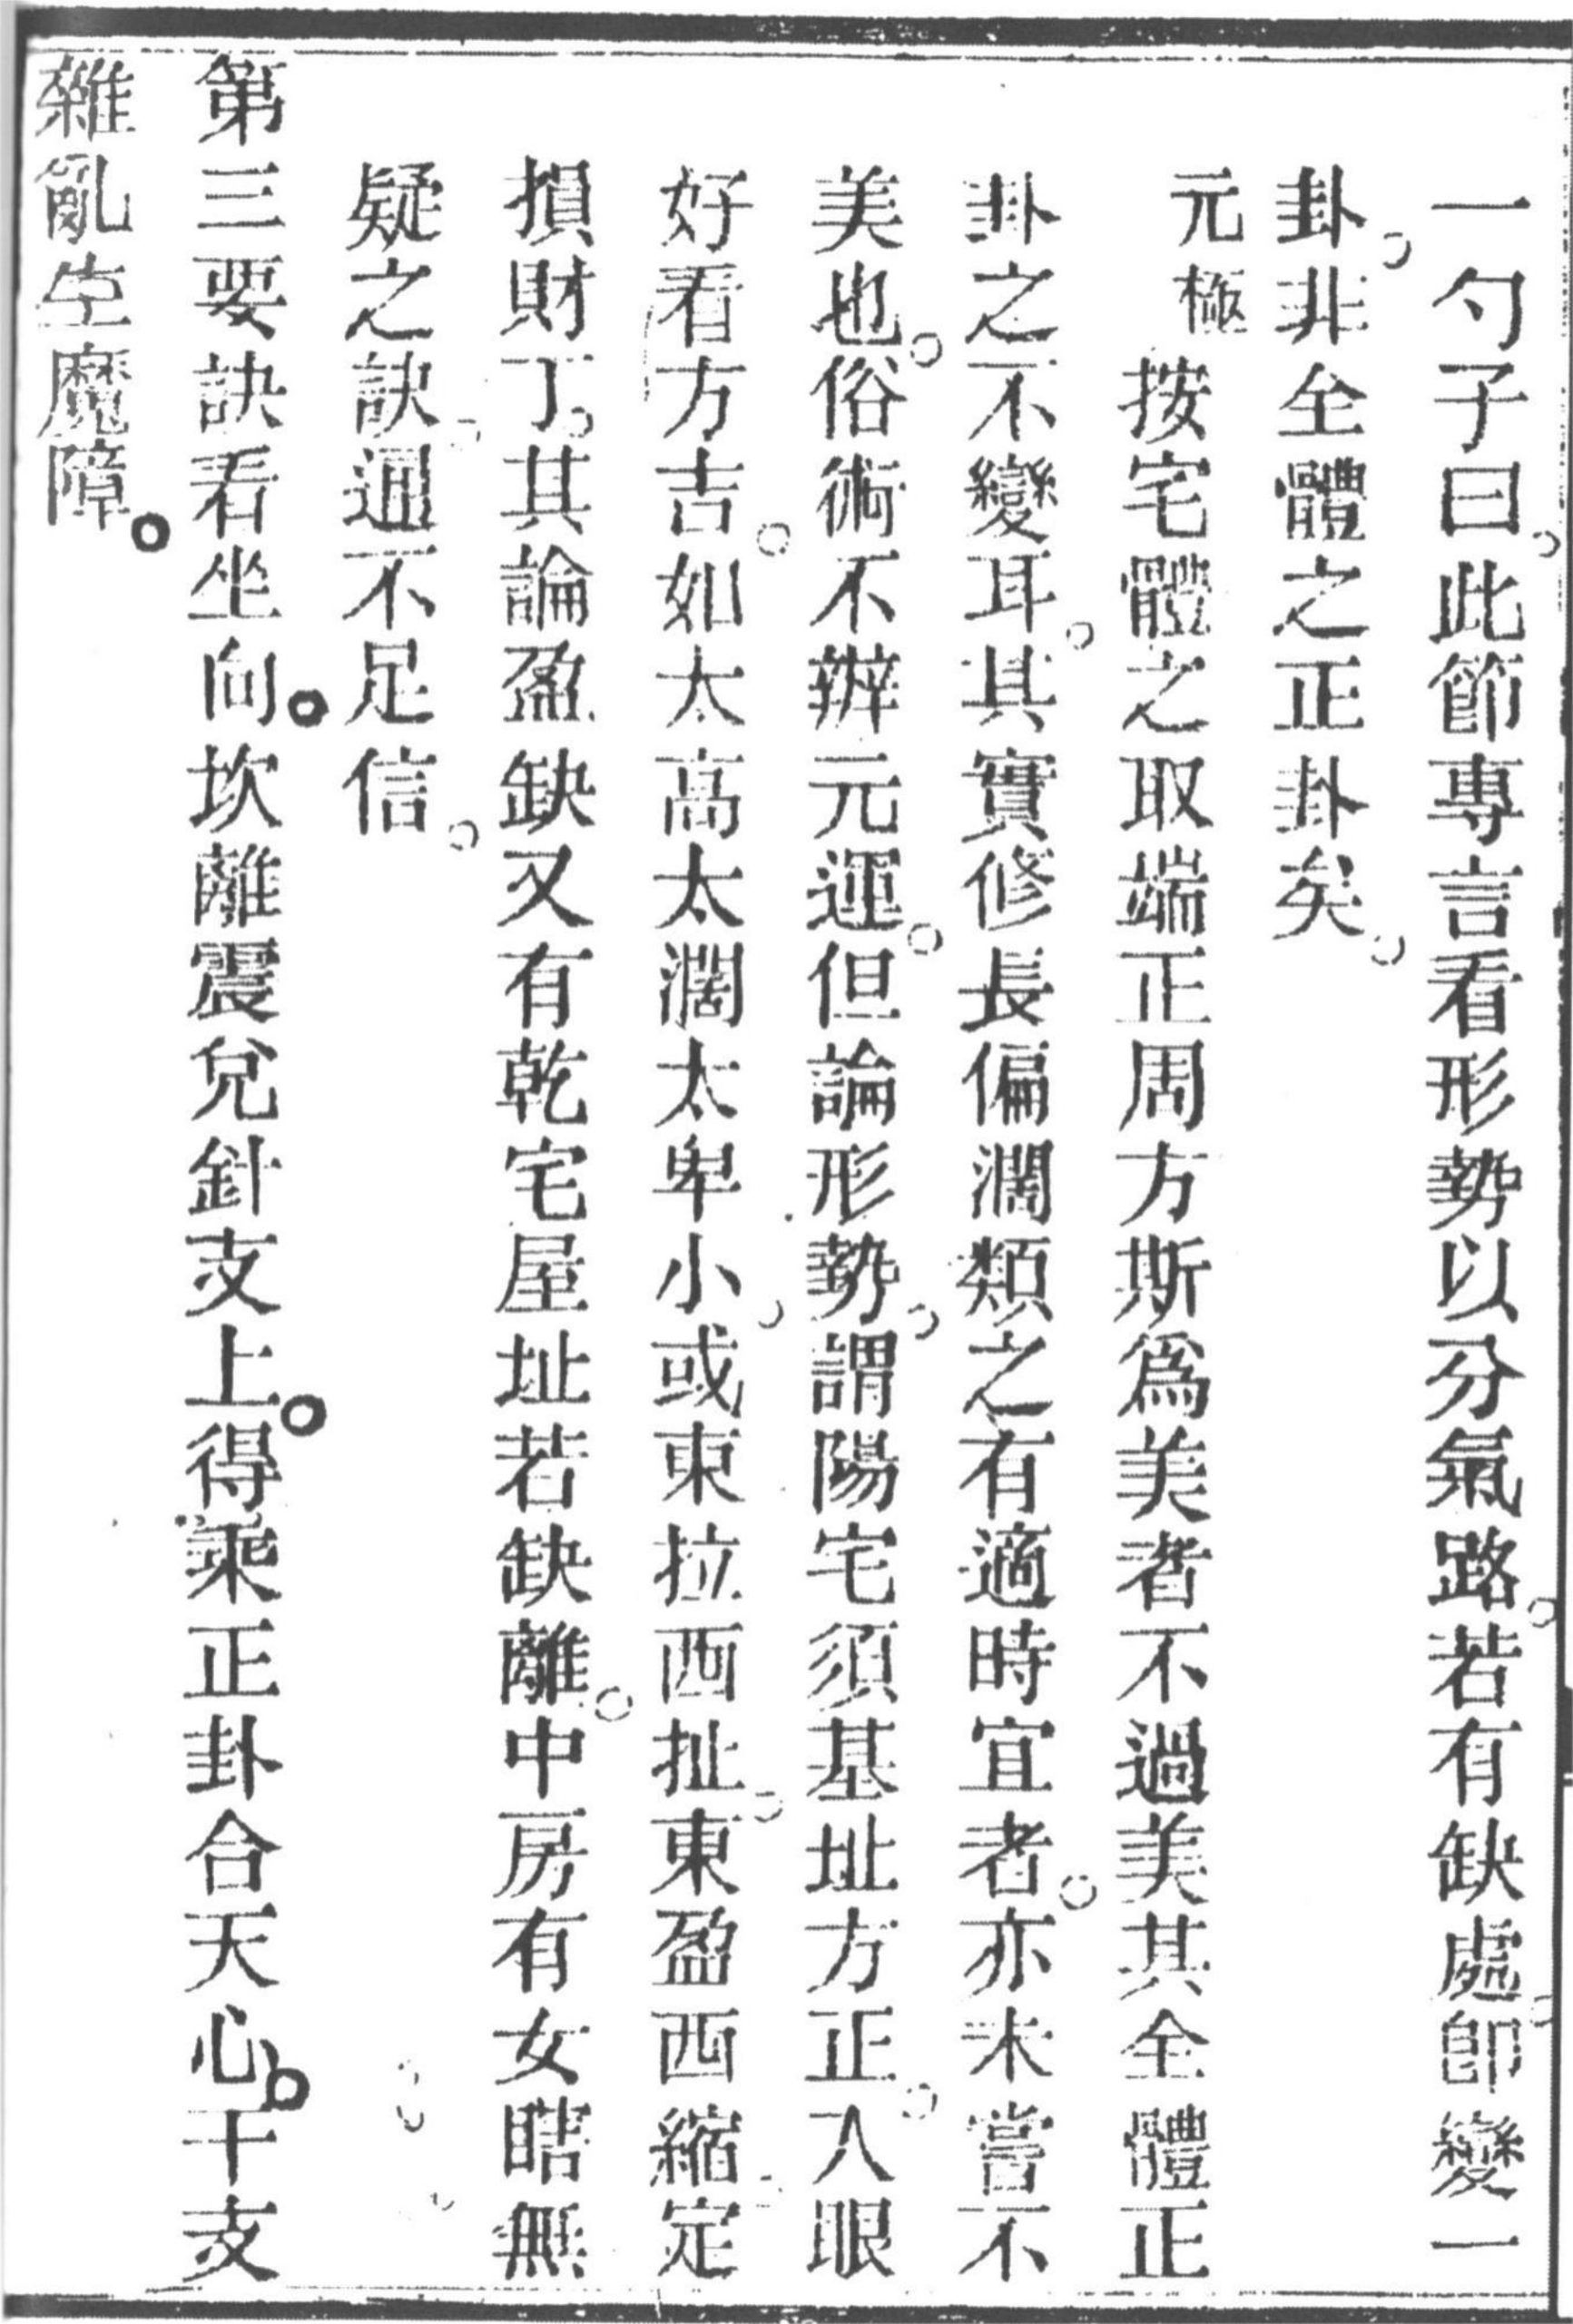 一勺子曰。此節專言看形勢以分氣路。若有缺處。卽變一
卦。非全體之正卦矣。
元極按宅體之取端正周方斯爲美者不過美其全體正
卦之不變耳。其實修長偏濶類之有適時宜者。亦未嘗不
美也。俗術不辨元運。但論形勢。謂陽宅須基址方正。入眼
好看方吉。如太高太濶太卑小。或東拉西扯。東盈西縮。定
損財丁。其論盈缺又有乾宅屋址若缺離。中房有女瞎無
疑之訣。通不足信。
第三要訣看坐向。坎離震兌針支上。得乘正卦合天心。干支
雜亂生魔障。